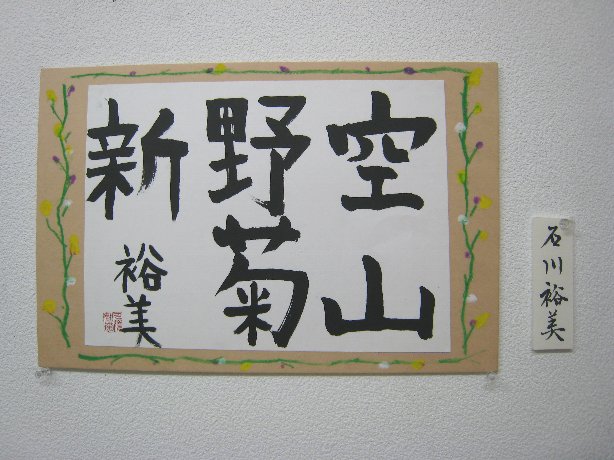 空山
野菊
新
裕美
石川裕美